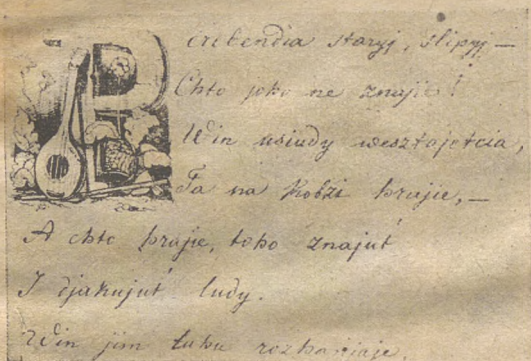 Perebendia staryj, slipyj —
Chto joho ne znaje!
Win usiudy wesztajetcia,
Ta na kobzi hraje, —
A chto hraje, toho znajut'
I djakujut' ludy.
Win jim tuhu rozhaniaje